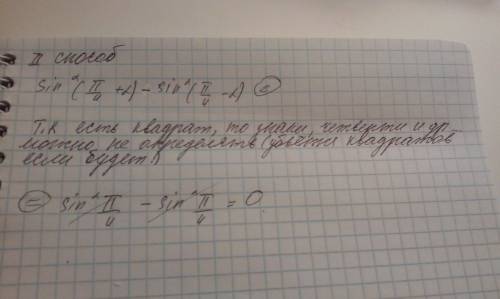 II способ
sin²(π/4 + α) - sin²(π/4 - α) =
Т.к есть квадрат, то знаки, четверти и др
можно не определять квадратов
если будет)
= sin² π/4 - sin² π/4 = 0